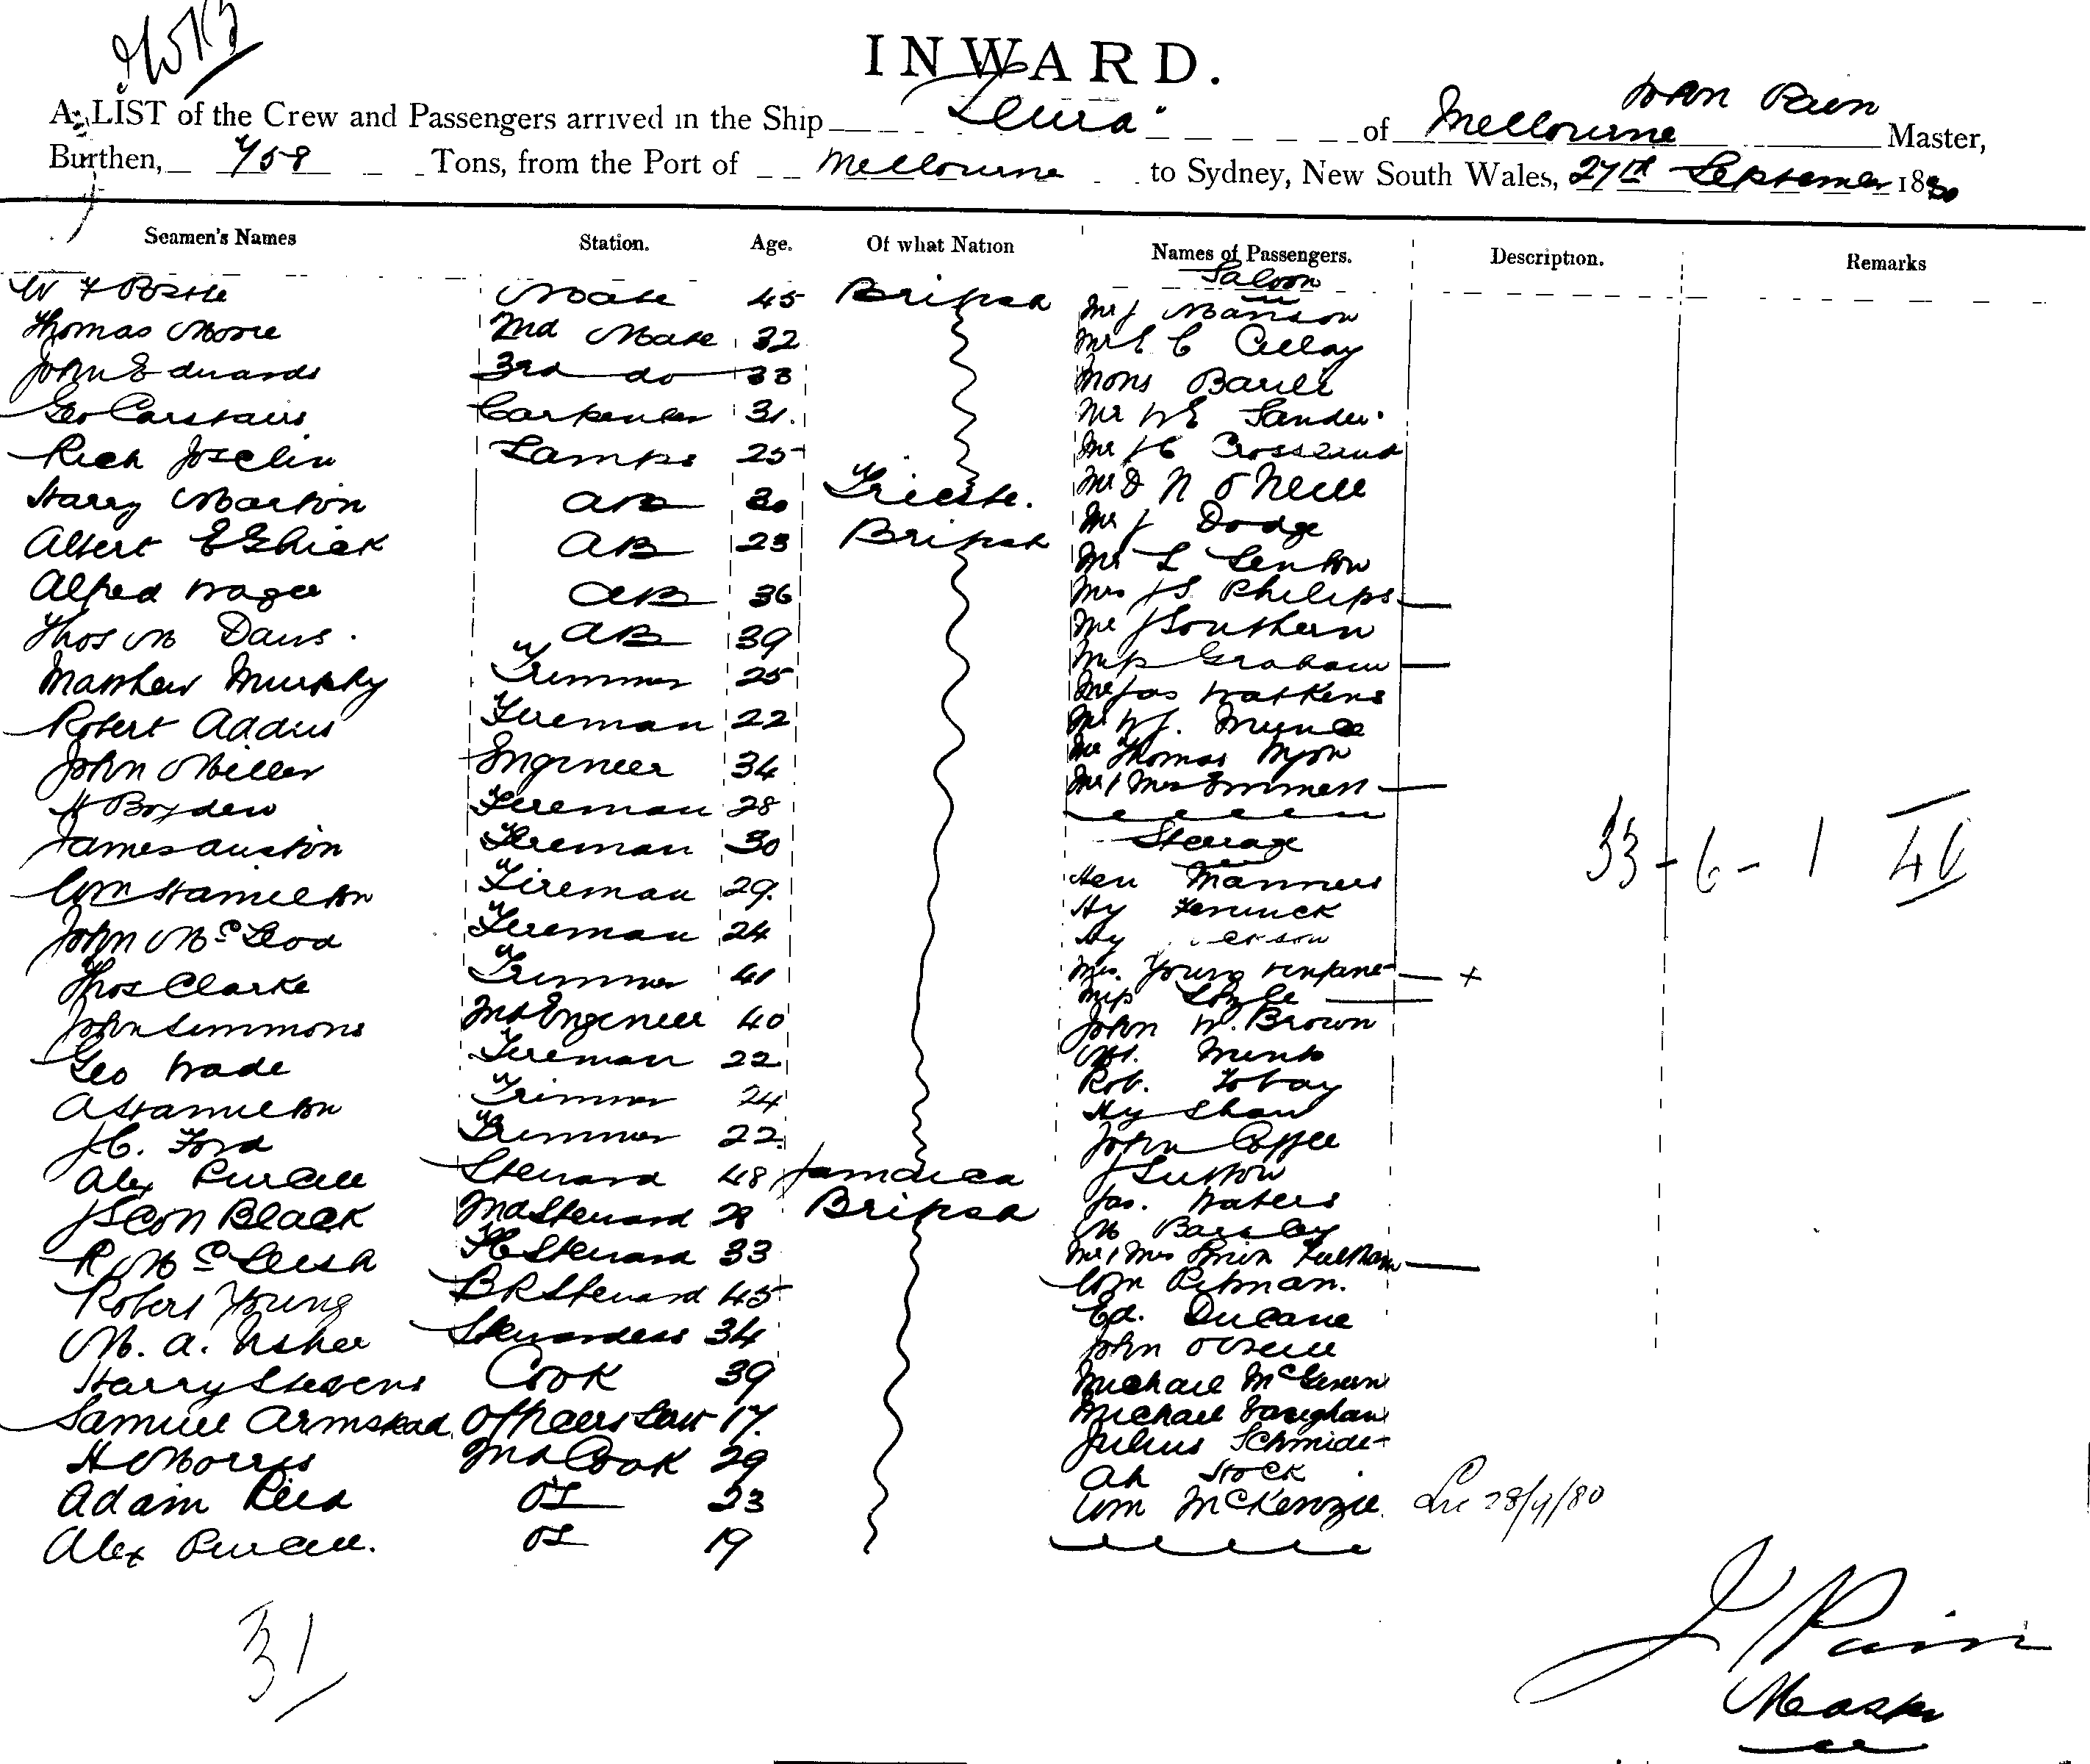 INWARD.
John Pain
A LIST of the Crew and Passengers arrived in the Ship Leura of Melbourne Master,
Burthen, 758 Tons, from the Port of Melbourne to Sydney, New South Wales, 27th September 1880
Seamen's Names Station. Age. Of what Nation Names of Passengers. Description. Remarks
Saloon
W Mate 45 British Mr J Manson
Thomas Moore 2nd Mate 32 Mr E C
John Edwards 3rd do 33 Mons
Geo Carstairs Carpenter 31. Mr W E Sander
Rich Joselin Lamps 25 Mr
Harry Marton AB 30 Trieste. Mr D N O'Neill
Albert AB 23 British Mr J Dodge
Alfred Wager AB 36 Mr L Lenton
Mrs J S Philips
Thos M Davis. AB 39 Mr J Southern
Matthew Murphy Trimmer 25 Miss Graham
Mr Jas Watkins
Robert Addis Fireman 22 Mr W J.
John Miller Engineer 34 Mr Thomas
H Boyden Fireman 28 Mr & Mrs Emmett
James Austin Fireman 30 Steerage
Wm Hamilton Fireman 29. Manners
John McLeod Fireman 24 Hy Fenwick
Hy
Thos Clarke Trimmer 41 Mrs. Young & infant +
Miss
John Simmons 2nd Engineer 40 John W. Brown
Geo Wade Fireman 22
A Hamilton Trimmer 24 Rob.
J C. Ford Trimmer 22. Hy Shaw
John Coffee
Alex Purcell Steward 48 Jamaica J Sutton
J Scott Black 2nd Steward 28 British Jas. Waters
M Barclay
R McLeish F C Steward 33 Mr & Mrs
Robert Young B R Steward 45 Wm Pitman.
M. A. Usher Stewardess 34 Ed. Ducane
John O'Neill
Harry Stevens Cook 39 Michael
Samuel Officers Servt 17. Michael Vaughan
H Morris 2nd Cook 29 Julius Schmidt
Adam Reid OS 23 Ah Stock
Wm McKenzie 28/9/80
Alex Purcell. OS 19
33 - 6 - 1
31
J Pain
Master